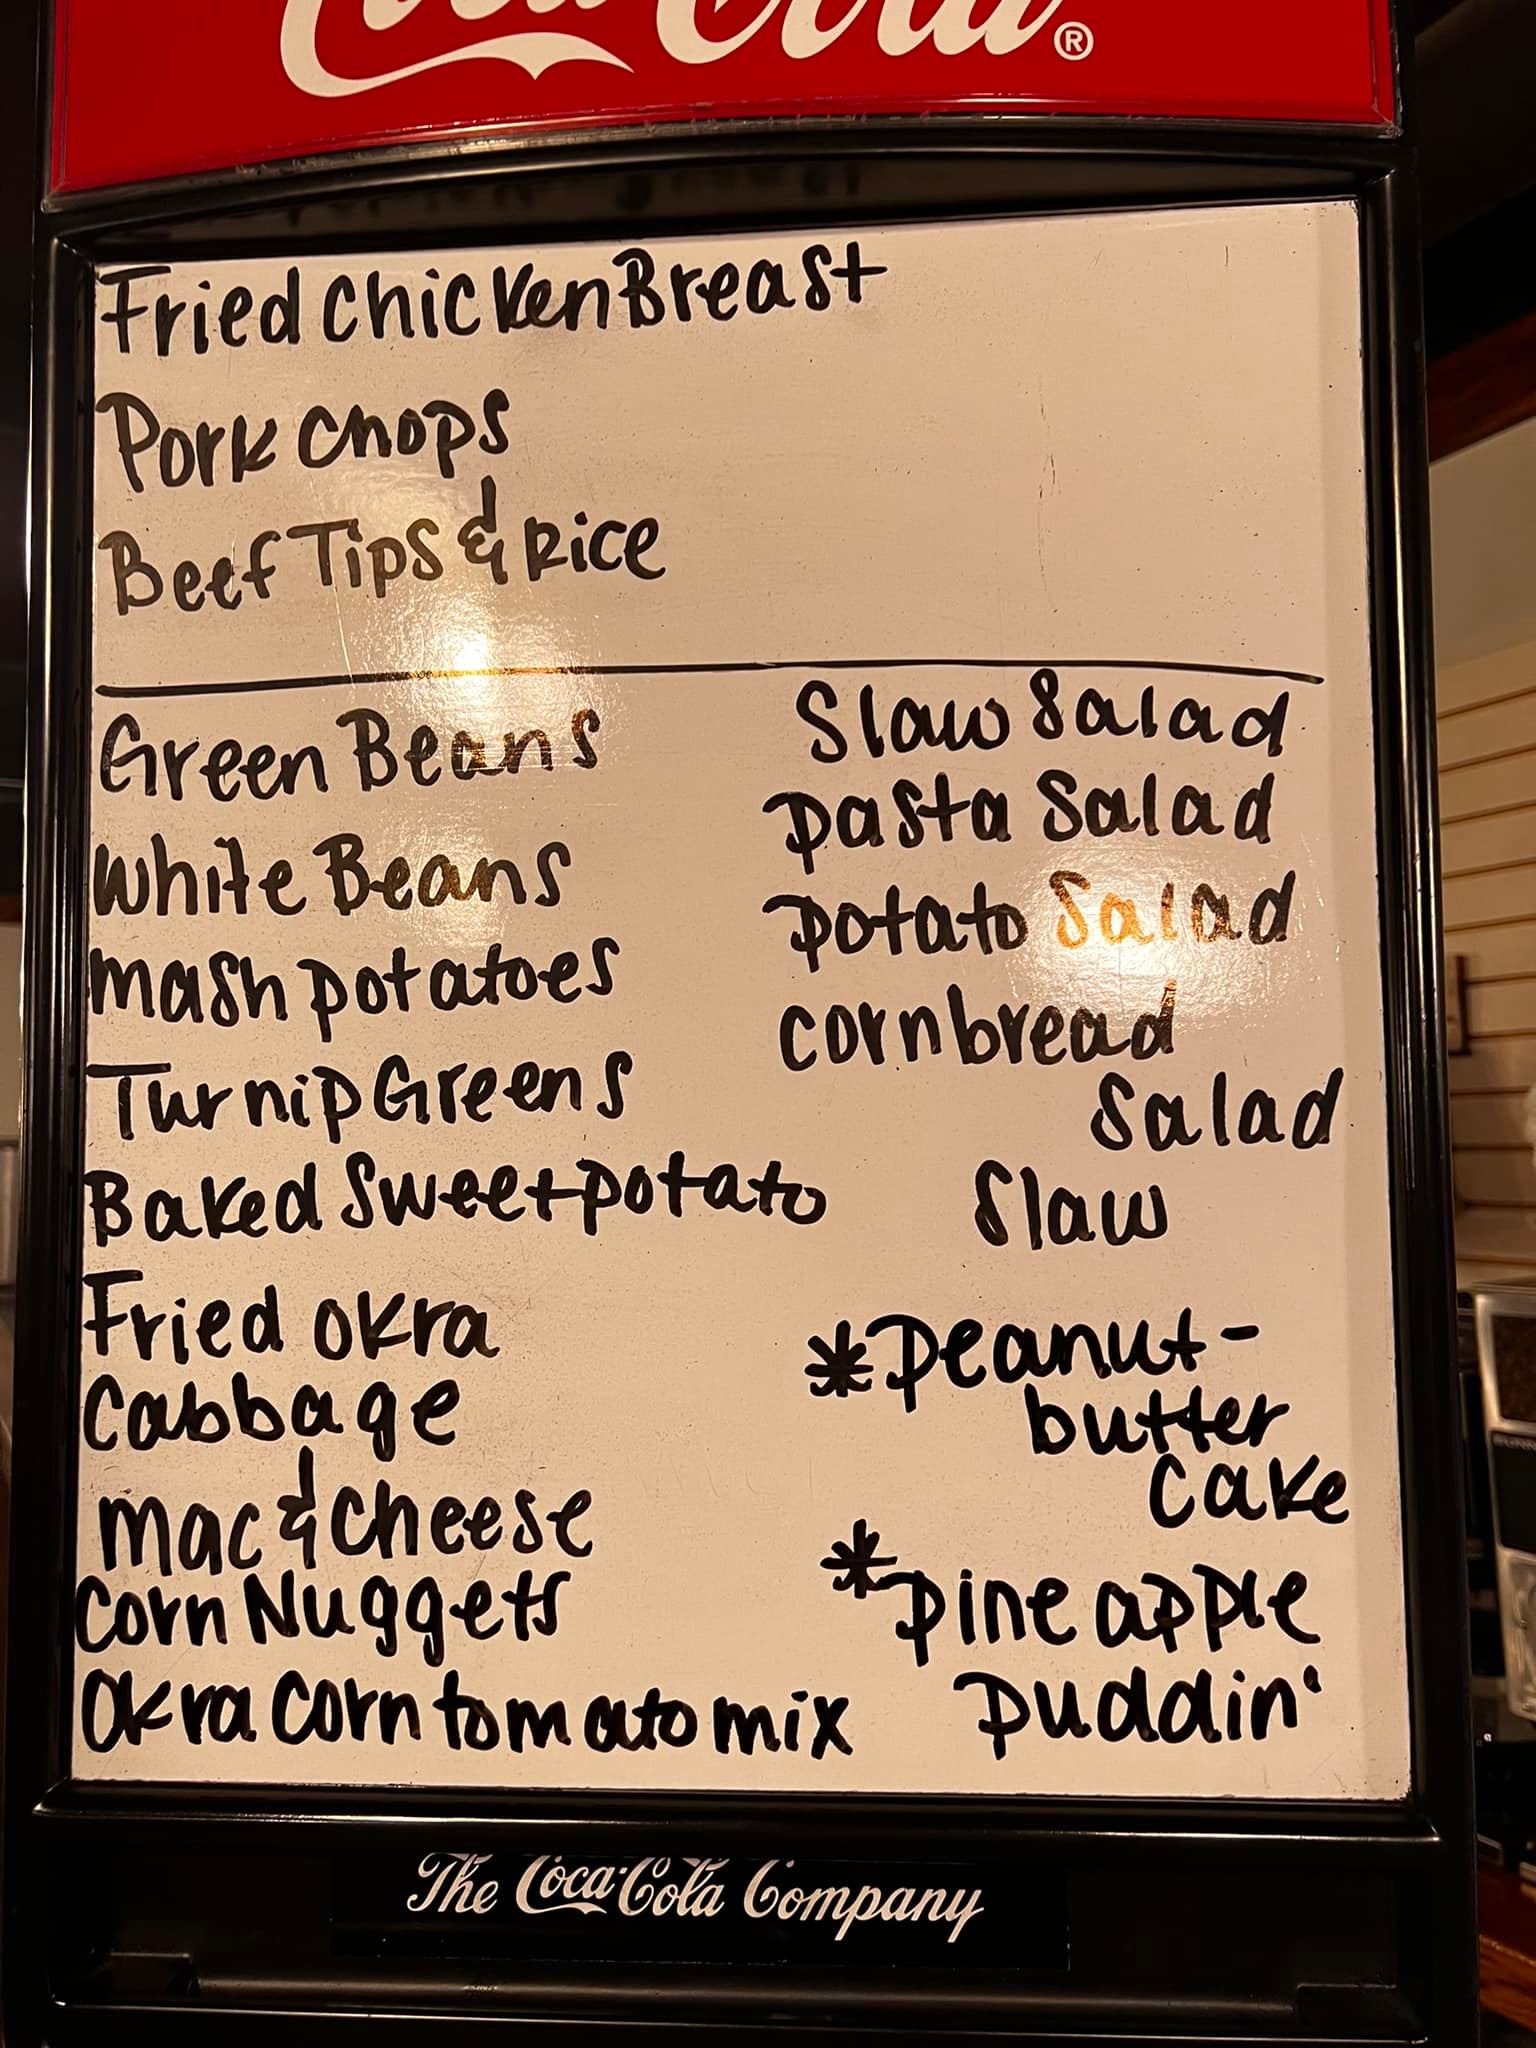 Coca-Cola®
Fried Chicken Breast
Pork Chops
Beef Tips & Rice
Green Beans
White Beans
Mash potatoes
Turnip Greens
Baked Sweet potato
Fried Okra
Cabbage
Mac & Cheese
Corn Nuggets
Okra Corn tomato mix
Slaw Salad
Pasta Salad
Potato Salad
Cornbread
Salad
Slaw
*Peanut-
butter
Cake
*Pineapple
Puddin'
The Coca-Cola Company